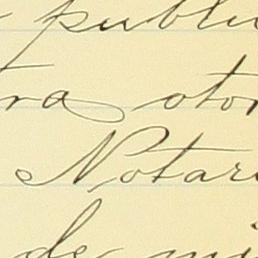 publi
ra otor
Notari
de mi